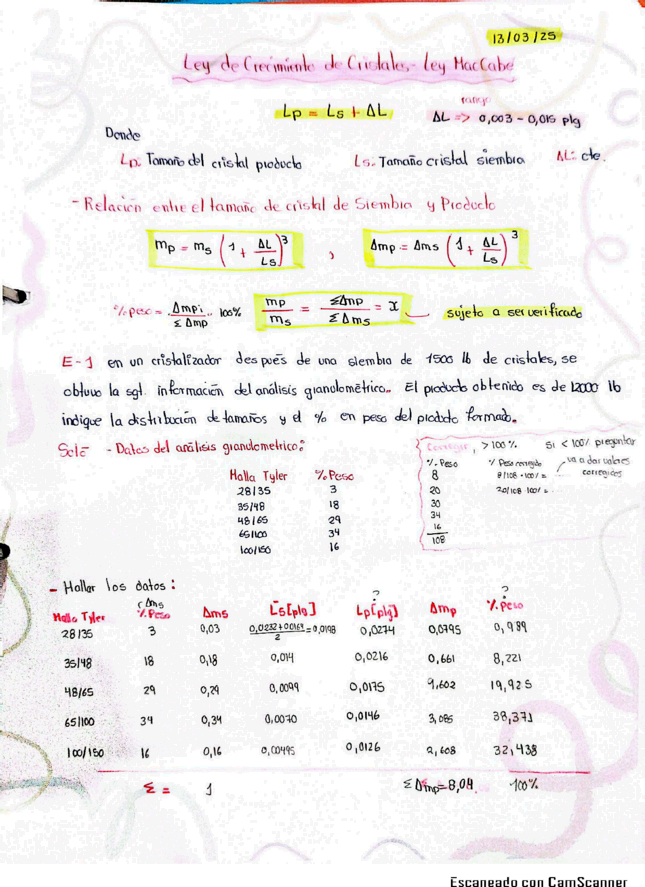 13/03/25
Ley de Crecimiento de Cristales - Ley MacCabe
Lp = Ls + ΔL
rango
ΔL => 0,003 - 0,015 plg
Donde
Lp: Tamaño del cristal producto Ls. Tamaño cristal siembra ΔL: cte.
- Relación entre el tamaño de cristal de Siembra y Producto
mp = ms (1 + ΔL/Ls)^3 , Δmp = Δms (1 + ΔL/Ls)^3
% peso = Δmpi/ΣΔmp . 100% mp/ms = ΣΔmp/ΣΔms = x sujeto a ser verificado
E-1 en un cristalizador después de una siembra de 1500 lb de cristales, se
obtuvo la sgt. información del análisis granulométrico. El producto obtenido es de 12000 lb
indique la distribución de tamaños y el % en peso del producto formado.
Solc - Datos del análisis granulometrico:
Malla Tyler %Peso
28/35 3
35/48 18
48/65 29
65/100 34
100/150 16
Corregir, > 100% Si < 100% preguntar
va a dar valores
corregidos
%. Peso % Peso corregido
8 8/108 · 100% =
20 20/108 100% =
30
34
16
108
- Hallar los datos:
Malla Tyler Δms %.Peso Δms L̄s[plg] ? Lp[plg] Δmp ? %.peso
28/35 3 0,03 (0,0232+0,0164)/2 = 0,0198 0,0274 0,0795 0,989
35/48 18 0,18 0,014 0,0216 0,661 8,221
48/65 29 0,29 0,0099 0,0175 1,602 19,925
65/100 34 0,34 0,0070 0,0146 3,085 38,371
100/150 16 0,16 0,00495 0,0126 2,608 32,438
Σ = 1 ΣΔmp=8,04 100%
Escaneado con CamScanner